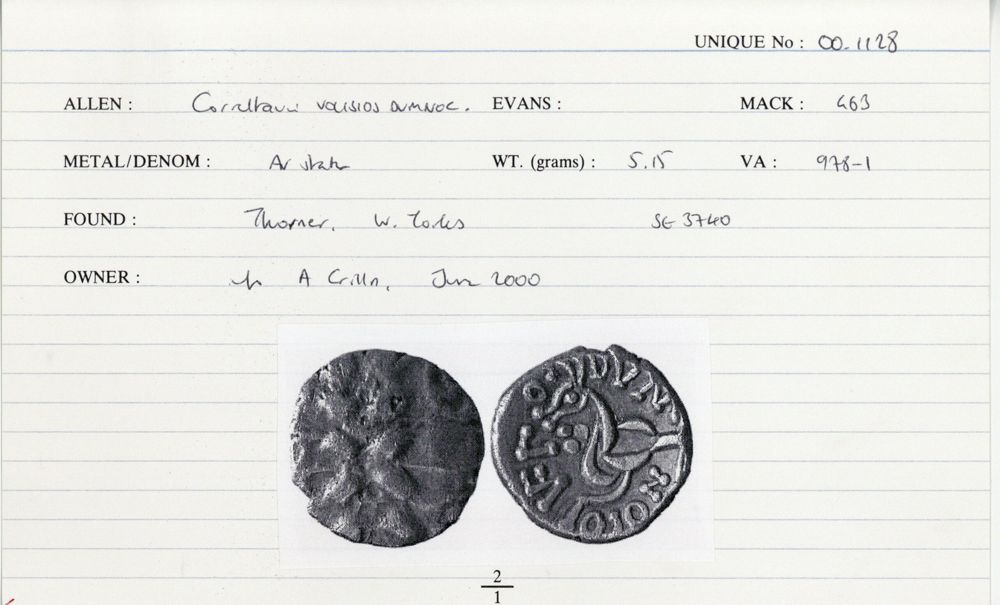 UNIQUE No : 00.1128
ALLEN : Corieltauvi VOLISIOS DVMNOC. EVANS : MACK : 463
METAL/DENOM : Av stater WT. (grams) : 5.15 VA : 978-1
FOUND : Thorner, W. Yorks SE 3740
OWNER : A Crilln, June 2000
2
1